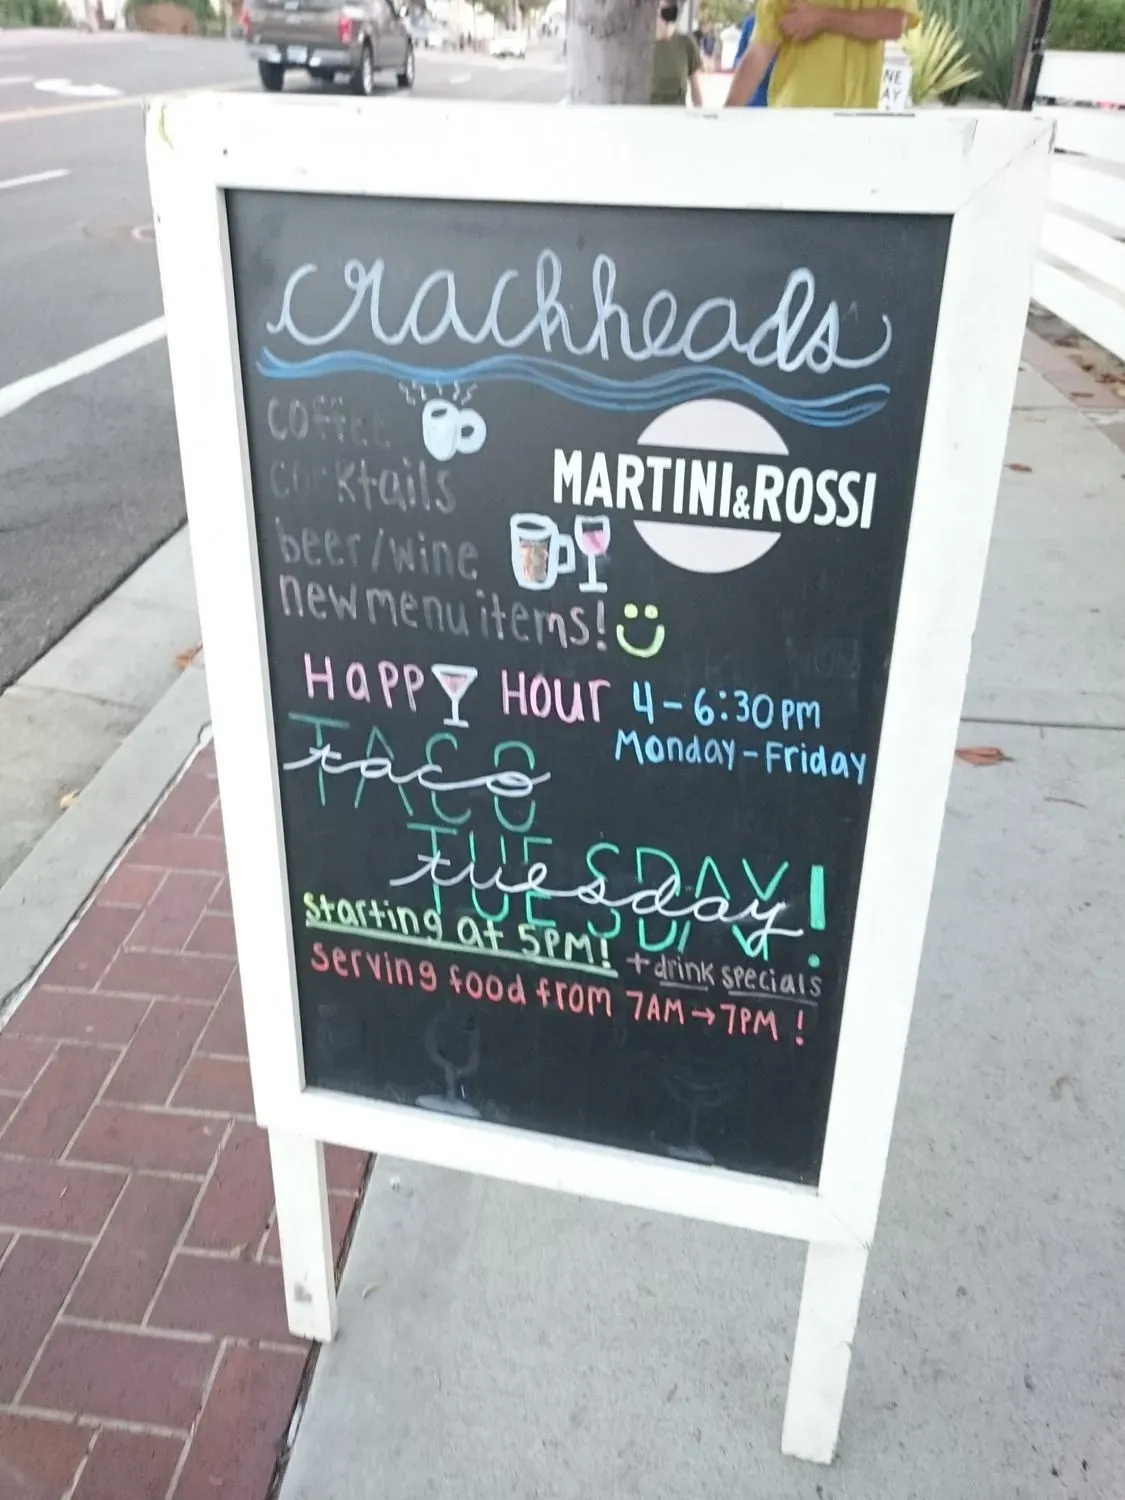 NE
AY
crackheads
coffee
cocktails
MARTINI&ROSSI
beer/wine
new menu items!
HAPPY HOUR 4-6:30PM
Monday-Friday
TACO
taco
TUESDAY!
tuesday
starting at 5PM!
+drink specials
serving food from 7AM→7PM!